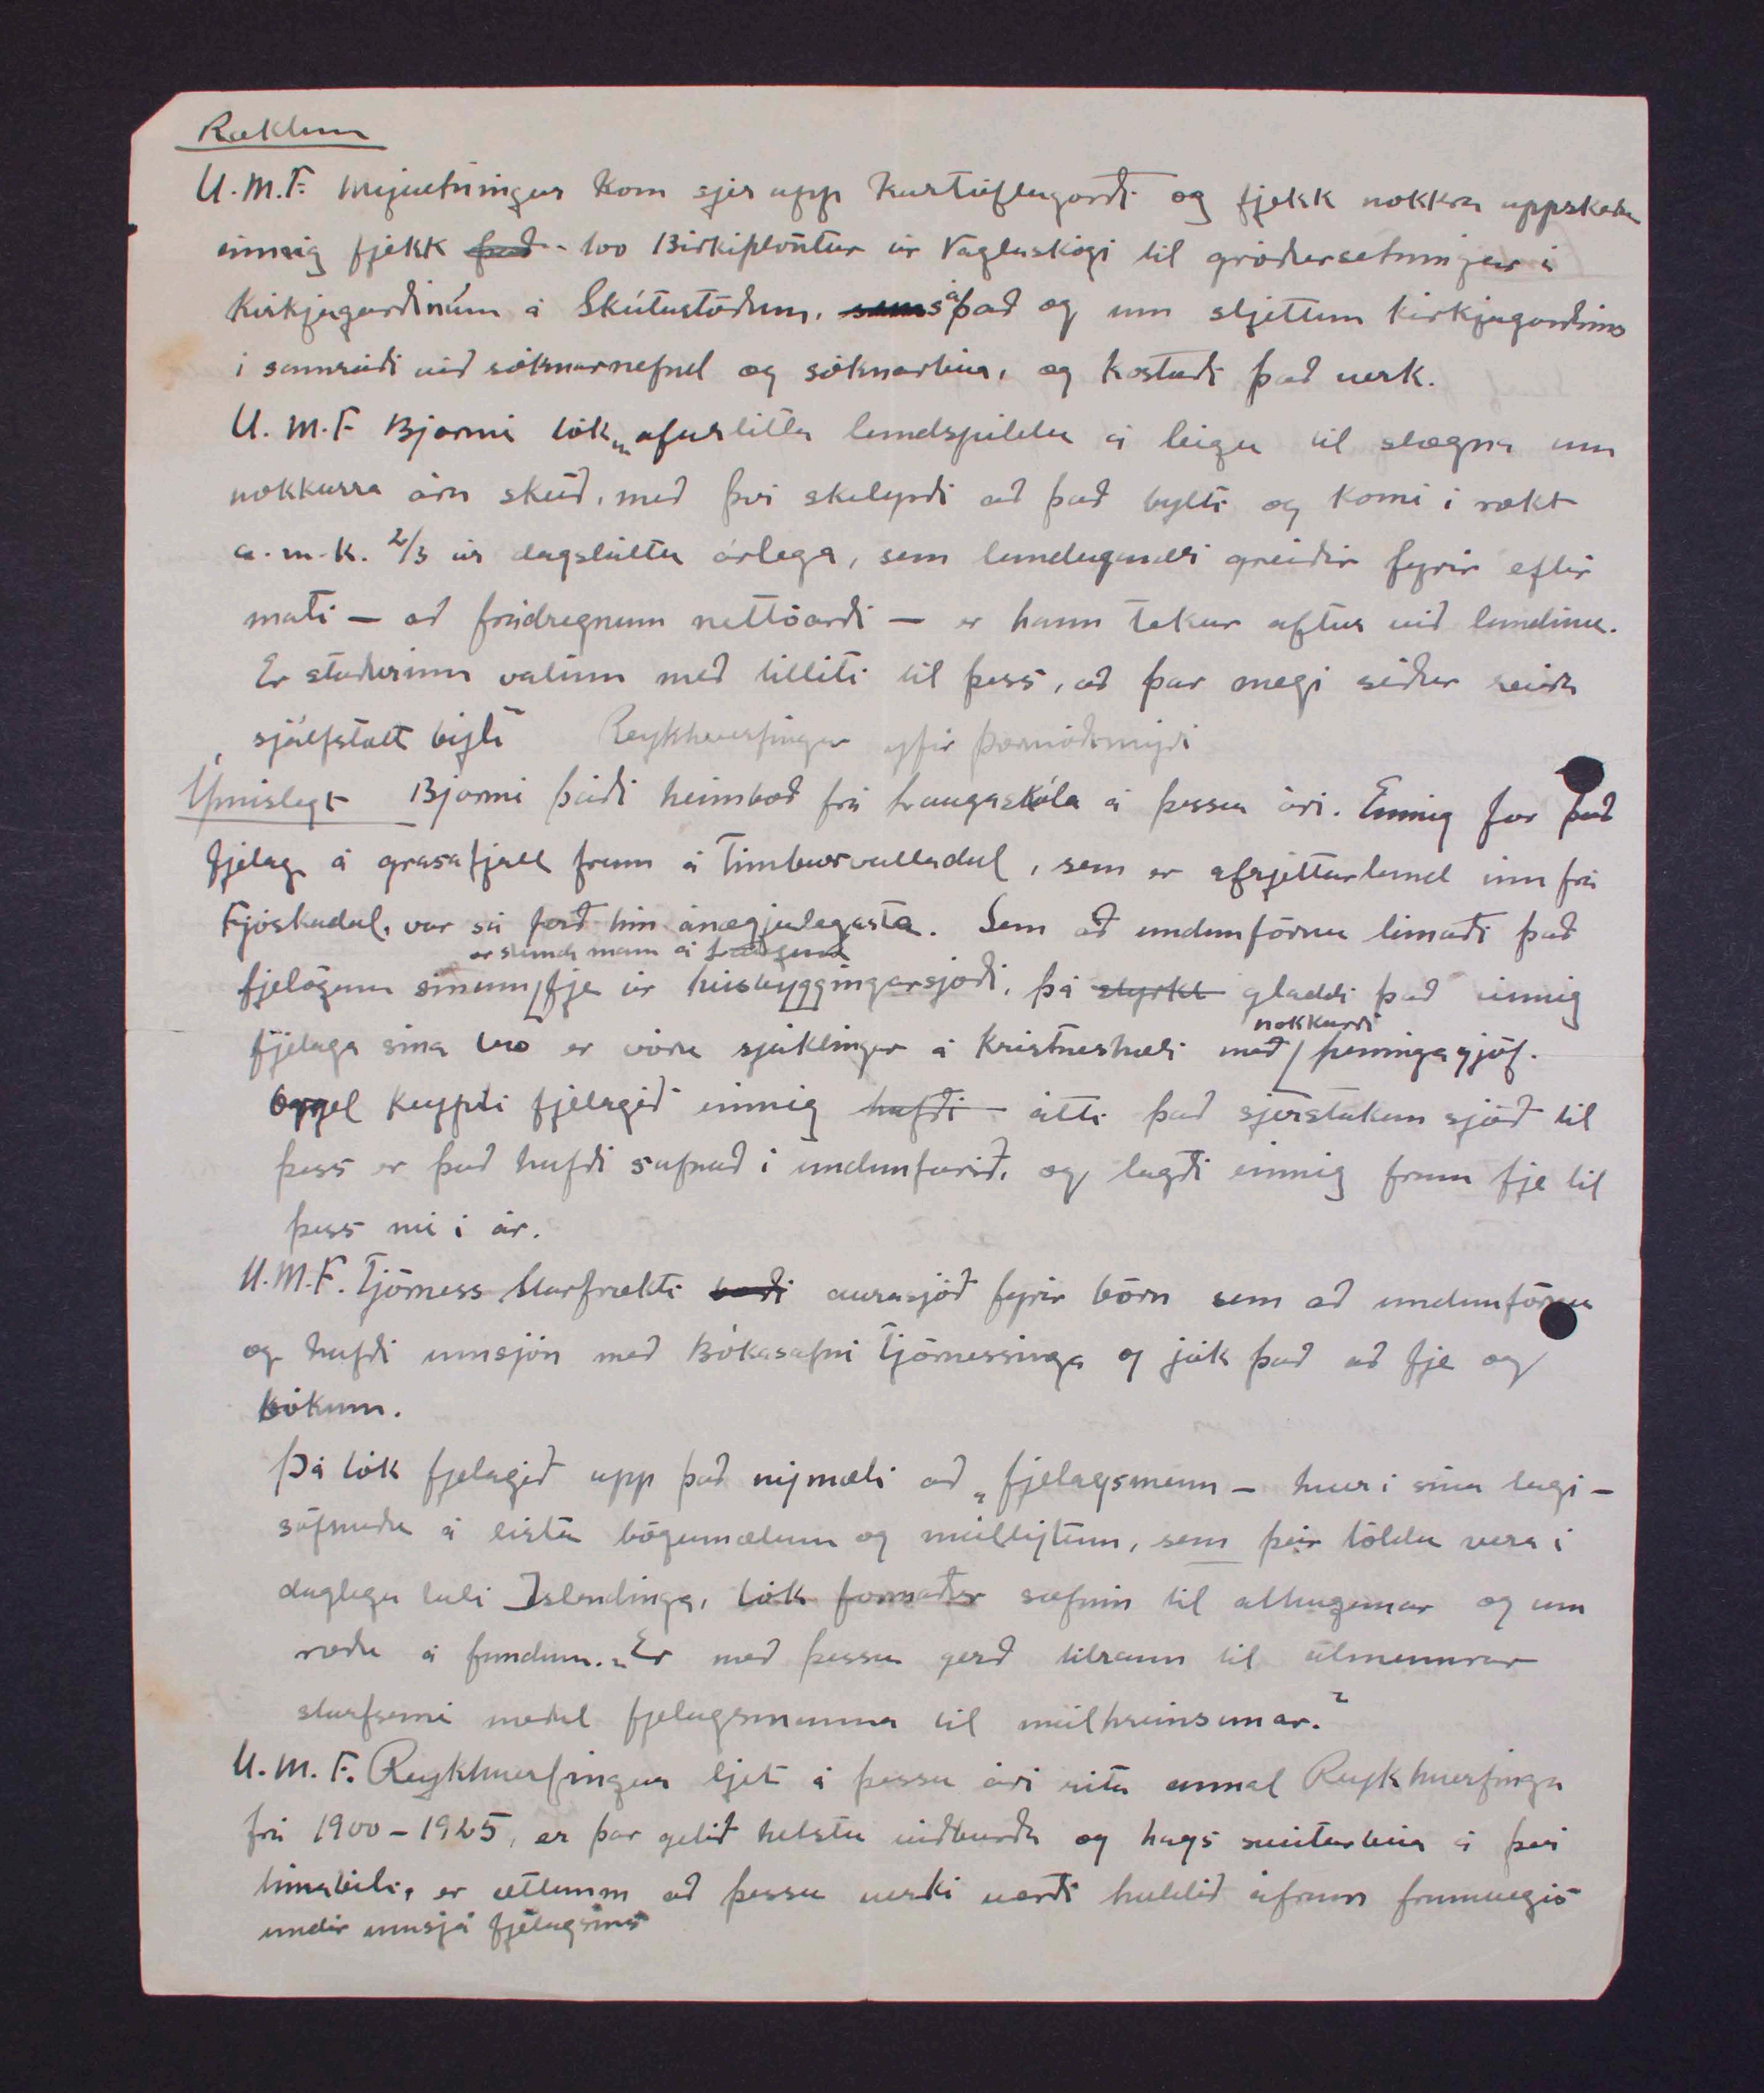 Ræktun
U.M.F. Mývetningur kom sjer upp kartöflugarði og fjekk nokkra uppskeru
einnig fjekk það - 100 Birkiplöntur úr Vaglaskógi til gróðursetningar í
kirkjugarðinum á Skútustöðum, sá það og um sljettun kirkjugarðsins
í samráði við sóknarnefnd og sóknarbúa, og kostaði það verk.
U.M.F. Bjarmi tók „afurlitla landspildu á leigu til slægna um
nokkurra ára skeið, með því skilyrði að það bylti og komi í rækt
a.m.k. 2/3 úr dagsláttu árlega, sem landeigandi greiðir fyrir eftir
mati – að frádregnum nettóarði – er hann tekur aftur við landinu.
Er staðurinn valinn með tilliti til þess, að þar megi síðar reisa
sjálfstætt býli Reykhverfingur yfir Þermóðsmýri
Ýmislegt Bjarmi þáði heimboð frá Laugaskóla á þessu ári. Einnig fór það
fjelag á grasafjall fram á Timburvalladal, sem er afrjettarland inn frá
Fnjóskadal, var sú ferð hin ánægjulegasta. Sem að undanförnu lánaði það
er stunda nám á
fjelögum sínum fje úr húsbyggingarsjóði, þá styrkt gladdi það einnig
nokkurri
fjelaga sína tvo er vóru sjúklingar á Kristneshæli með peningagjöf.
Orgel keypti fjelagið einnig hafði - átti það sjerstakan sjóð til
þess er það hafði safnað í undanfarið, og lagði einnig fram fje til
þess nú í ár.
U.M.F. Tjörness starfrækti aurasjóð fyrir börn sem að undanförnu
og hafði umsjón með Bókasafni Tjörnesinga og jók það að fje og
bókum.
Þá tók fjelagið upp það nýmæli að „fjelagsmenn – hver í sínu lagi –
söfnuðu á lista bögumælum og mállýtum, sem þeir töldu vera í
daglegu tali Íslendinga, tók formaður söfnin til athugunar og um
ræðu á fundum. „Er með þessu gerð tilraun til almennrar
starfsemi meðal fjelagsmanna til málhreinsunar."
U.M.F. Reykhverfingur ljet á þessu ári rita annal Reykhverfinga
frá 1900–1925, er þar getið helstu viðburða og hags sveitarbúa á því
tímabili, er ætlunin að þessu verki verði haldið áfram framvegis
undir umsjá fjelagsins